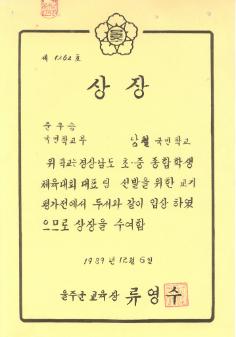 제 1262 호
상장
준우승
국민학교부 남월 국민학교
위 학교는 경상남도 초·중 종합학생
체육대회 대표팀 선발을 위한 교기
평가전에서 두서와 같이 입상 하였
으므로 상장을 수여함
1989년 12월 6일
울주군교육장 류영수